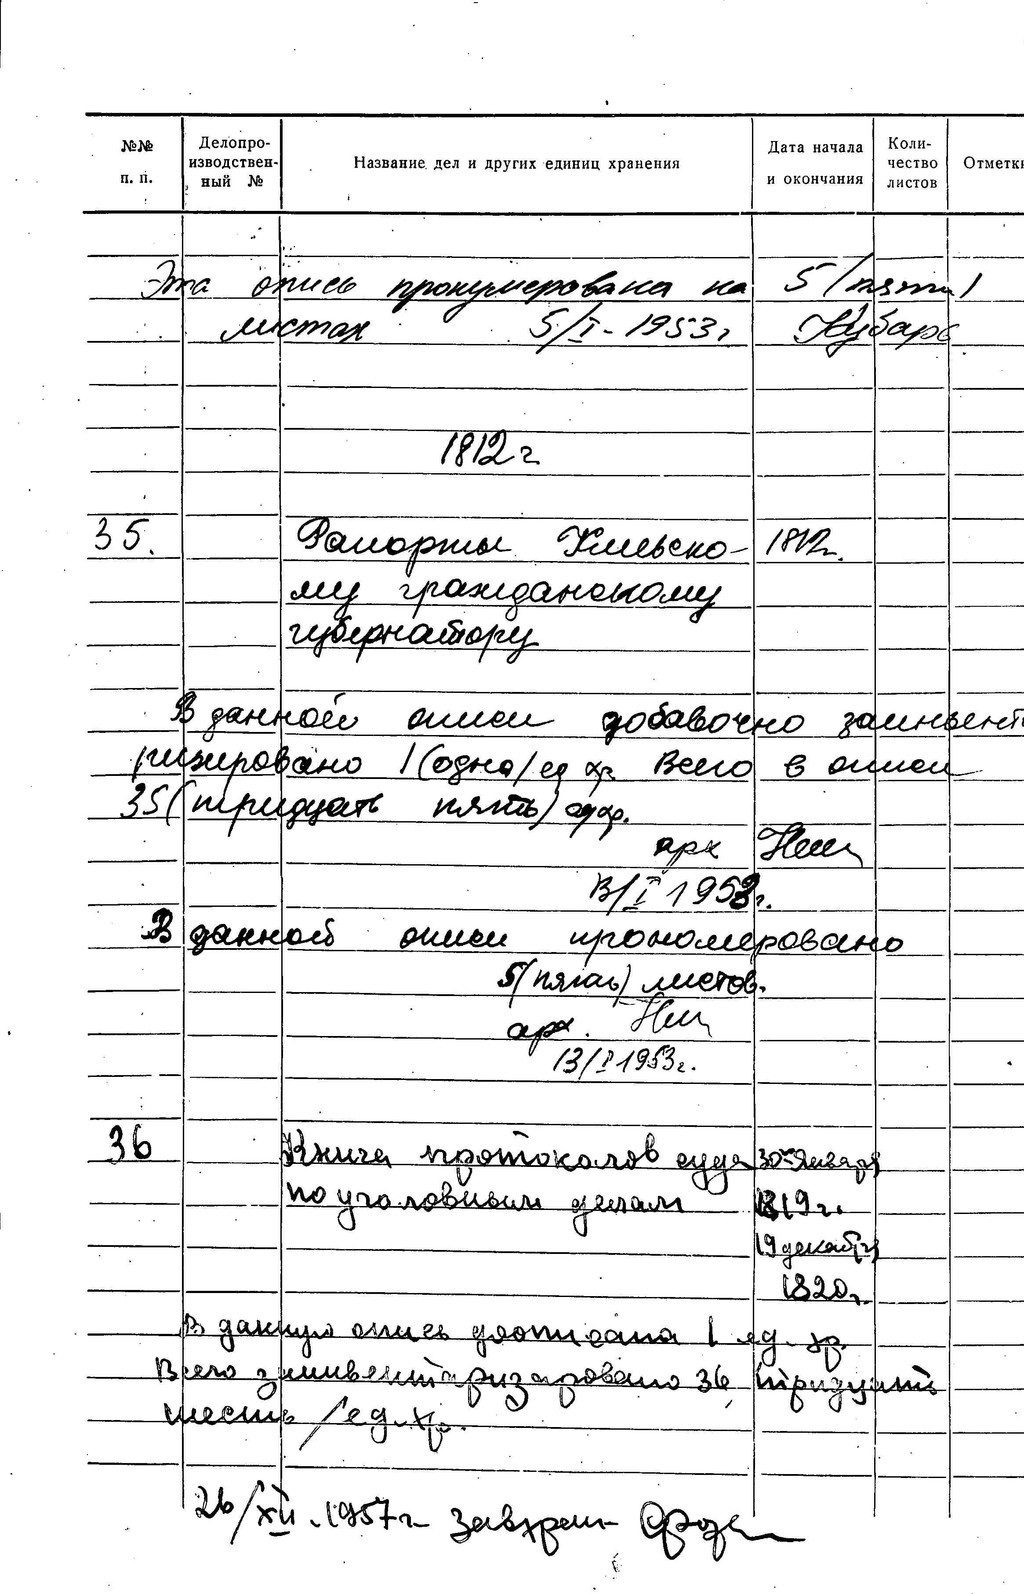 №№ п. п.
Делопро-
изводствен-
ный №
Название дел и других единиц хранения
Дата начала
и окончания
Коли-
чество
листов
Отметки
Эта опись пронумерована на 5 /пяти/
листах 5/I-1953г
1812г
35. Рапорты Киевско- 1812г.
му гражданскому
губернатору
В данной описи добавочно заинвента
ризировано 1 (одна/ ед хр Всего в описи
35 (тридцать пять) ед хр.
арх
13/I 1953г.
В данной описи прономеровано
5 (пять) листов.
арх.
13/I 1953г.
36 Книга протоколов суда 30го Января
по уголовным делам 1819г.
19 декабря
1820г.
В данную опись дописана 1 ед. хр.
Всего заинвентаризаровано 36 тридцать
шесть / ед. хр.
26/XII.1957г. Завхран